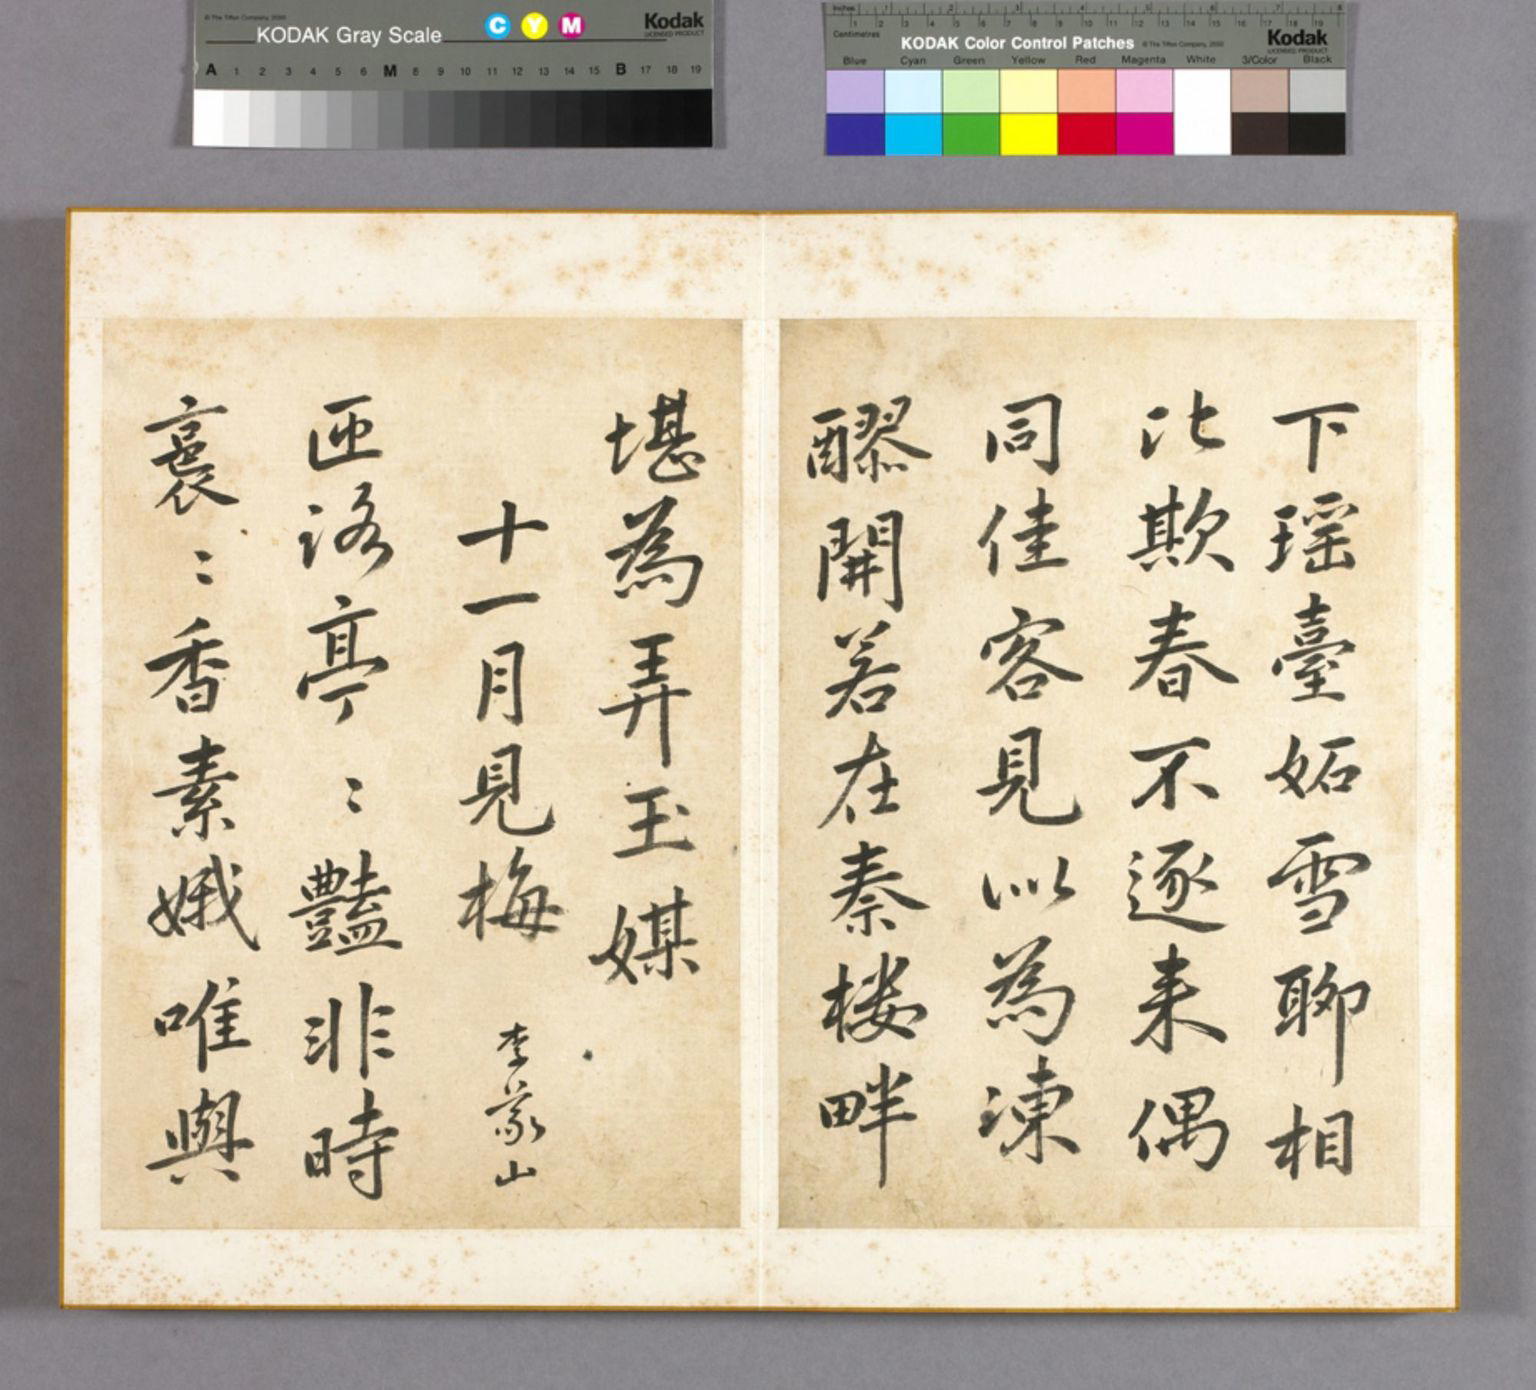 © The Tiffen Company, 2000
KODAK Gray Scale
C Y M
Kodak
LICENSED PRODUCT
A 1 2 3 4 5 6 M 8 9 10 11 12 13 14 15 B 17 18 19
Inches 1 2 3 4 5 6 7 8
Centimetres 1 2 3 4 5 6 7 8 9 10 11 12 13 14 15 16 17 18 19
KODAK Color Control Patches
© The Tiffen Company, 2000
Kodak
LICENSED PRODUCT
Blue Cyan Green Yellow Red Magenta White 3/Color Black
下瑶臺妬雪聊相
比欺春不逐来偶
同佳客見以為凍
醪開若在秦楼畔
堪為弄玉媒
十一月見梅 李義山
匝路亭〻豔非時
裛〻香素娥唯與